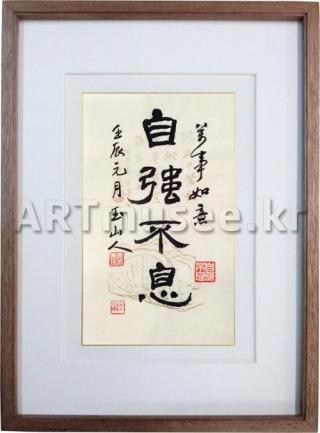 萬事如意
自強不息
壬辰元月 玉山人
ARTmusee.kr